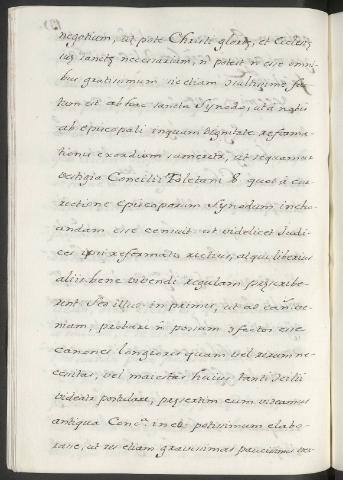 negotium, ut pote Christi gloriæ, et Eccles
iæ sanctæ necessarium, ñ potest ñ esse omni
bus gratissimum sic etiam
tum est ab hac sancta Synodo, ut a nobis
ab episcopali inquam dignitate reforma
tionis exordium sumeret, ut sequamur
vestigia Concilii Toletani 8 quod à cor
rectione Episcoporum Synodum incho
andam esse censuit ut videlicet Judi
ces ipsi reformati rectius, atque liberius
aliis bene vivendi regulam præscribe
rent Sed illud in primis, ut ad
niam, probare ñ possum
canones longiores quam vel rerum ne
cessitas, vel maiestas huius tanti
videatur postulare, præsertim cum videamus
antiqua Conc.ᵃ in eo potissimum elabo
rasse, ut res etiam gravissimas paucissimis ver